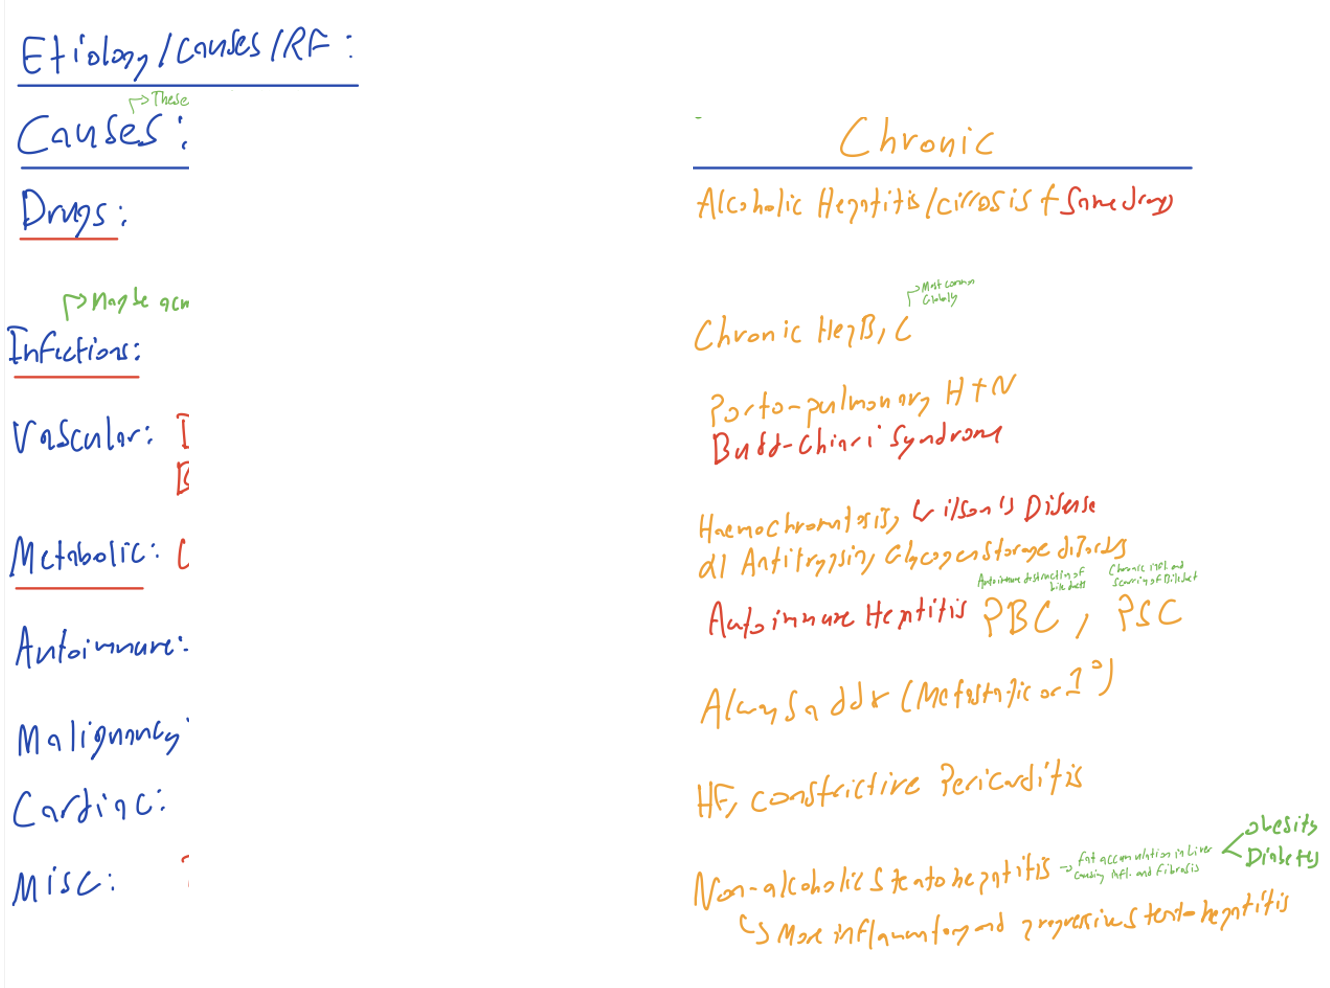 Etiology/Causes/RF:
These
Causes:
Chronic
Drugs:
Alcoholic Hepatitis/cirrosis + Some drugs
May be acu
Most common
Globally
Infections:
Chronic HepB, C
Porto-pulmonary HTN
Vascular:
Budd-Chiari Syndrome
B
Haemochromatosis, Wilson's Disease
Metabolic: C
α1 Antitrypsin, Glycogen storage disorders
Autoimmune destruction of
bile ducts
Chronic infl. and
scarring of Bile duct
Autoimmune:
Autoimmune Heptitis PBC, PSC
Malignancy
Always a ddx (Metastatic or 1°)
Cardiac:
HF, constrictive Pericarditis
Misc:
Non-alcoholic Steatohepatitis → Fat accumulation in Liver
causing infl. and Fibrosis
obesity
Diabetes
More inflammatory and progressive steato-hepatitis